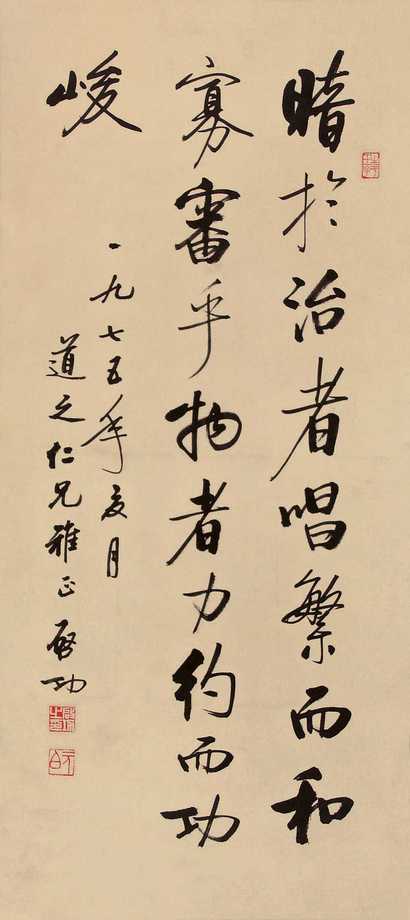 暗於治者唱繁而和
寡審乎物者力約而功
峻
一九七五年夏月
道之仁兄雅正 啓功
啓功之印
元白